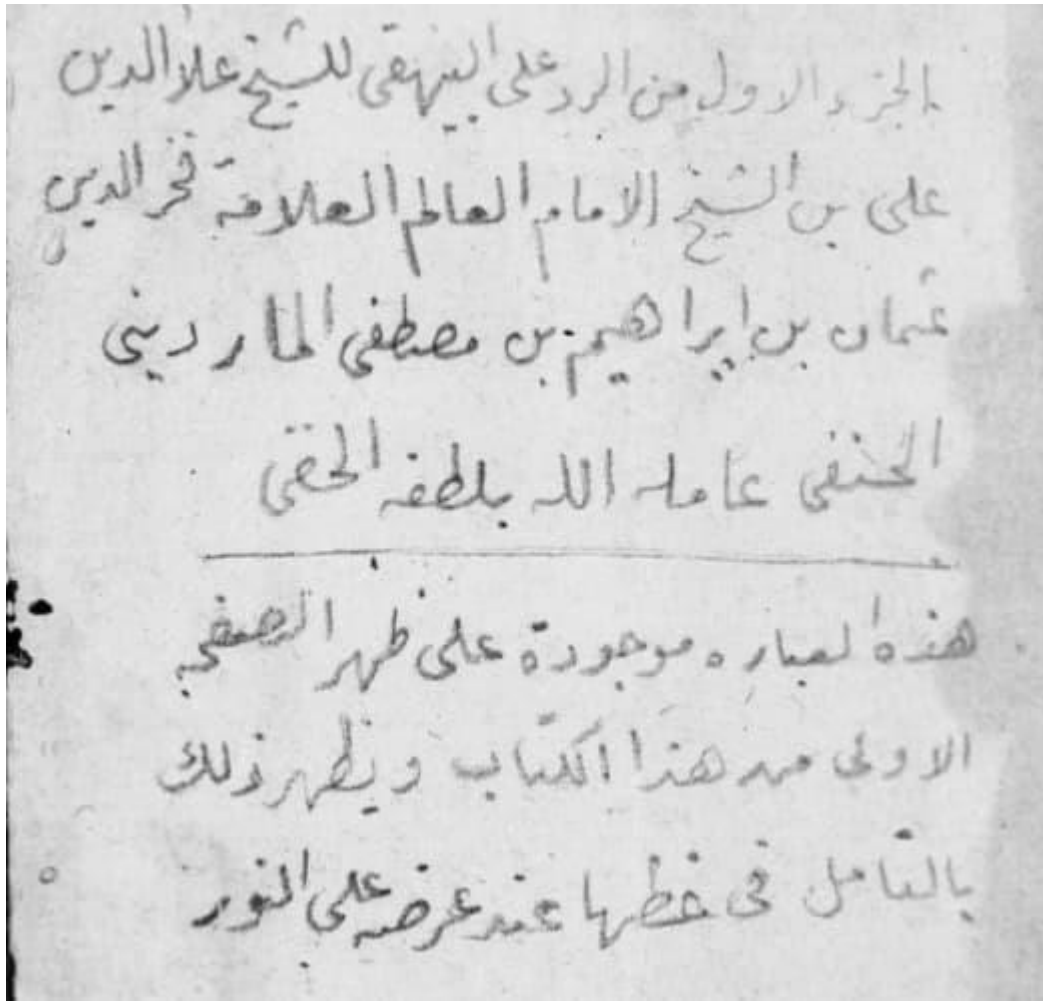 الجزء الاول من الرد على البيهقى للشيخ علا الدين
على بن الشيخ الامام العالم العلامة فخر الدين
عثمان بن ابراهيم بن مصطفى الماردينى
الحنفى عامله الله بلطفه الخفى
هذه العباره موجودة على ظهر الصفحه
الاولى من هذا الكتاب ويظهر ذلك
بالتامل فى خطها عند عرضه على النور